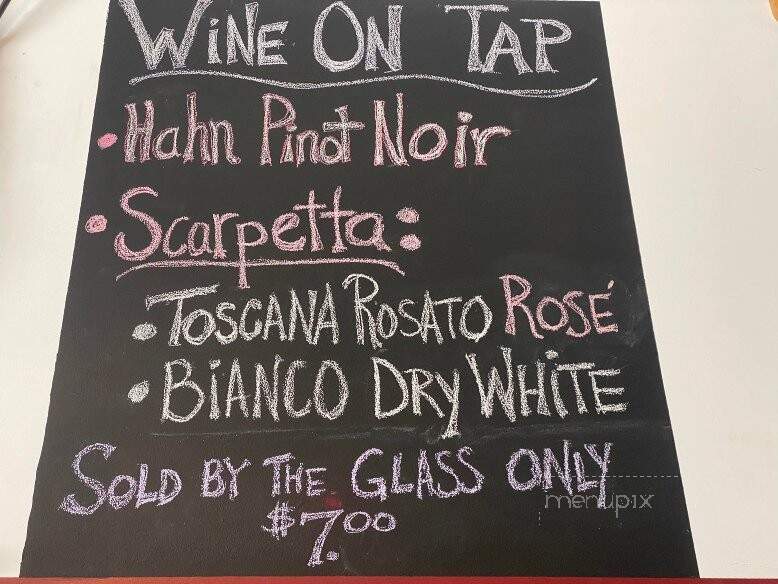 WiNE ON TAP
• Hahn Pinot Noir
• Scarpetta:
• TOSCANA ROSATO ROSÉ
• BiANCO DRY WHiTE
SOLD BY THE GLASS ONLY
$7.00
menupix